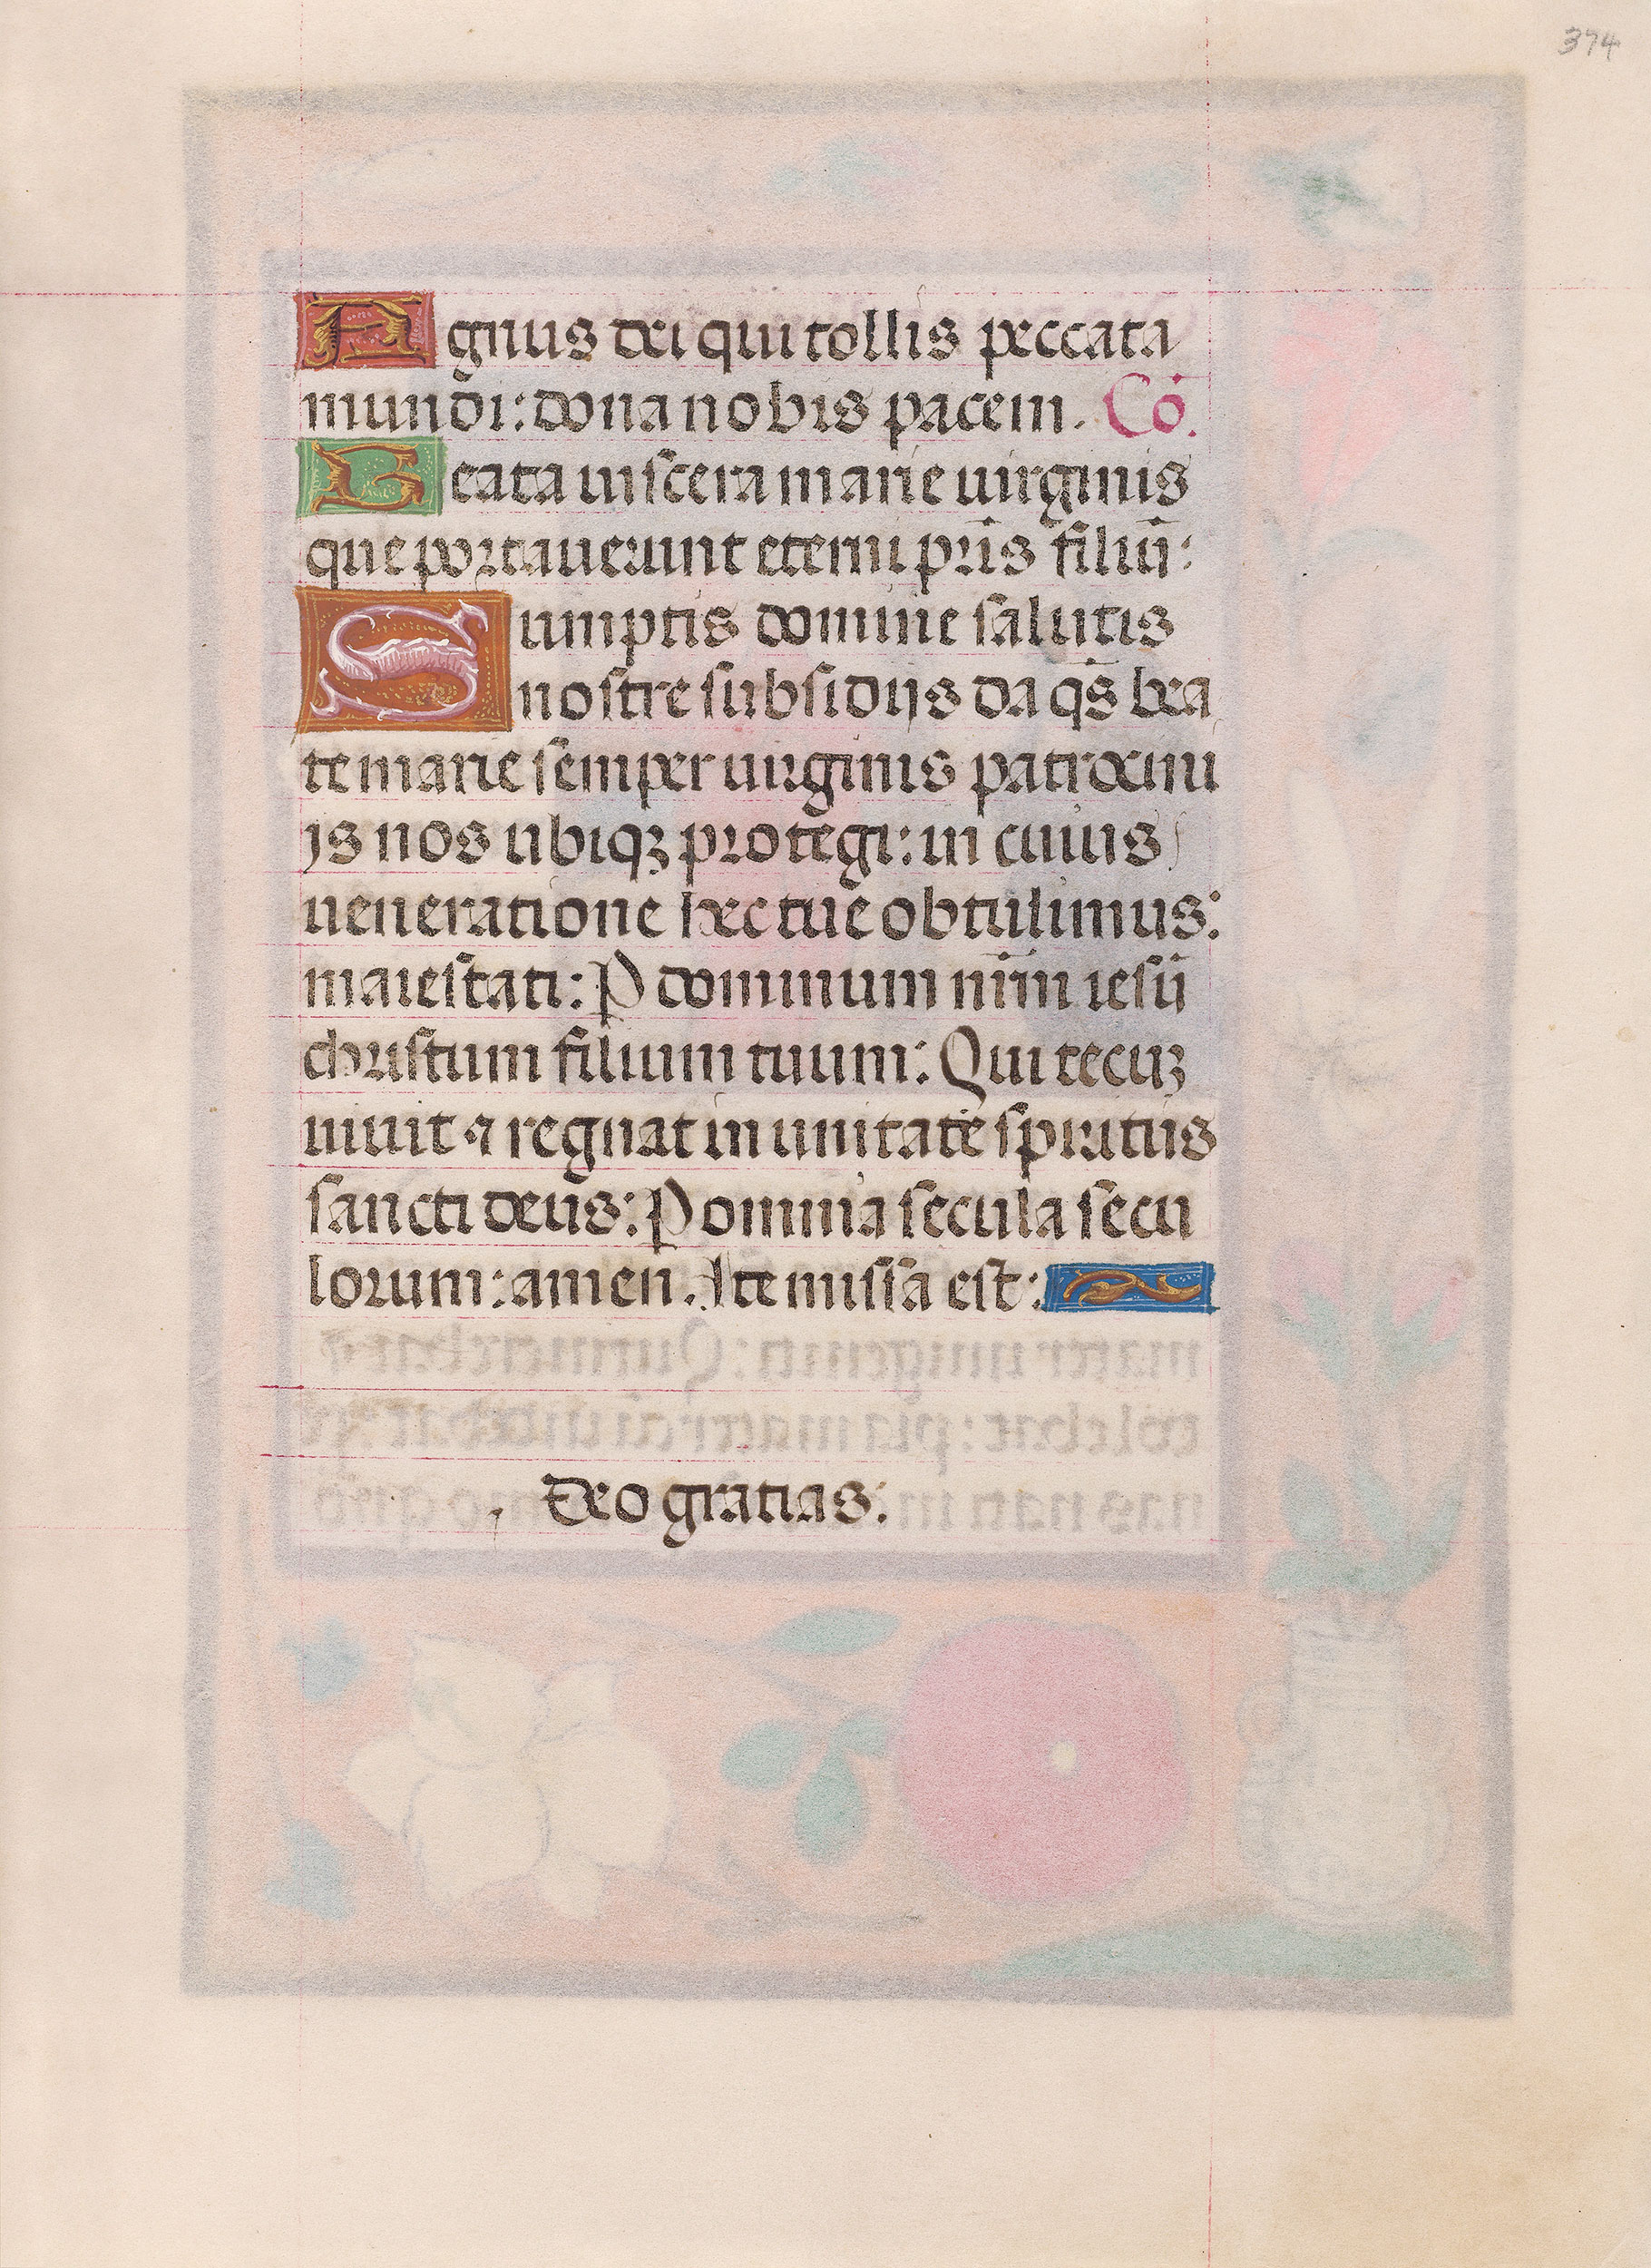 374
Agnus dei qui tollis peccata
mundi: dona nobis pacem. Cō.
Beata uiscera marie uirginis
que portauerunt eterni pr̄is filiū:
Sumptis domine salutis
nostre subsidijs da qs̄ bea
te marie semper uirginis patrocini
js nos ubiqꝫ protegi: in cuius
ueneratione hec tue obtulimus:
maiestati: P dominum nr̄m iesū
christum filium tuum: Qui tecuꝫ
uiuit ⁊ regnat in unitate spiritus
sancti deus: P omnia secula secu
lorum: amen. Ite missa est:
Deo gratias: